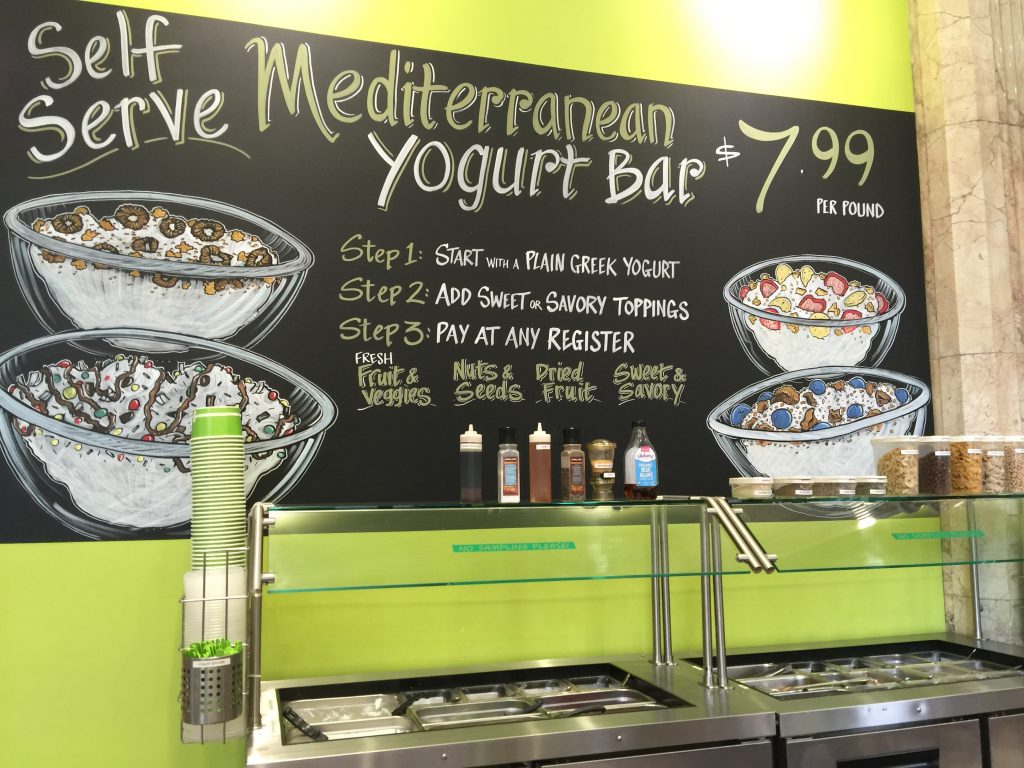 Self
Serve
Mediterranean
Yogurt Bar
$7.99
PER POUND
Step 1: START WITH A PLAIN GREEK YOGURT
Step 2: ADD SWEET OR SAVORY TOPPINGS
Step 3: PAY AT ANY REGISTER
FRESH
Fruit &
Veggies
Nuts &
Seeds
Dried
Fruit
Sweet &
Savory
NO SAMPLING PLEASE!